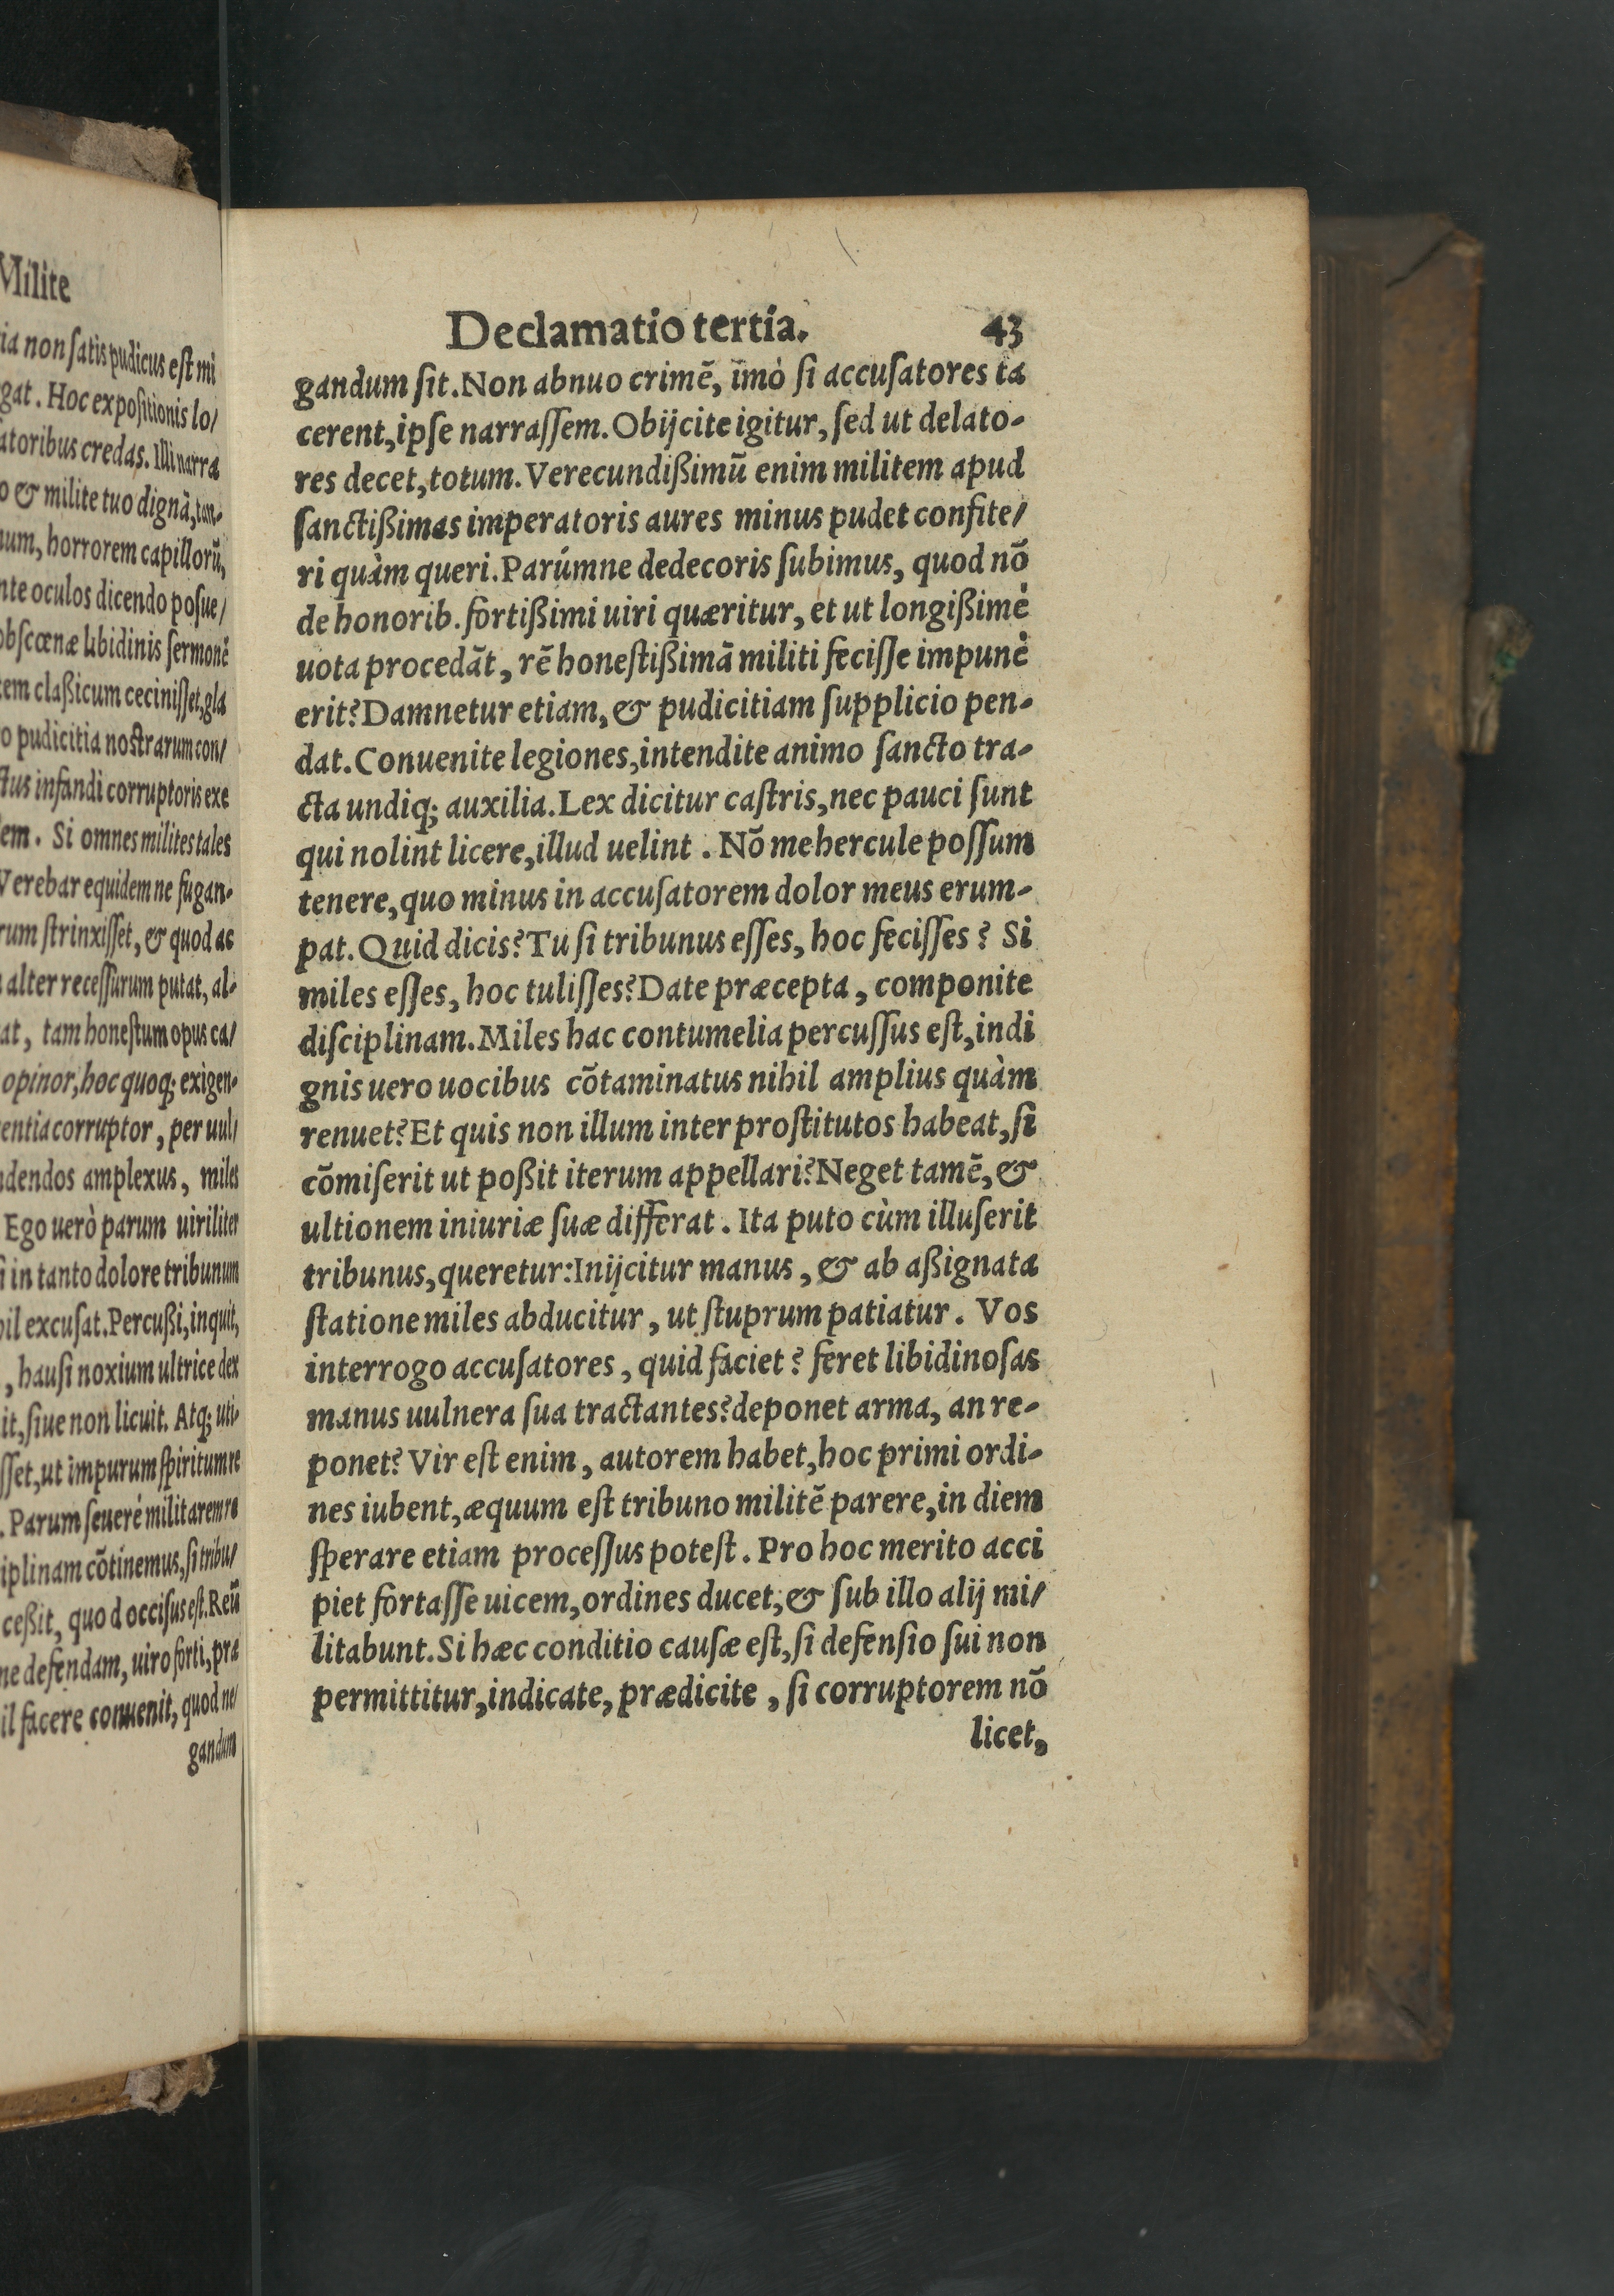 Milite
ia non ſatis pudicus eſt mi
gat. Hoc expoſitionis lo/
atoribus credas. Illi narra
o & milite tuo dignã, tan-
num, horrorem capillorũ,
nte oculos dicendo poſue/
obſcœnæ libidinis ſermonẽ
tem claßicum ceciniſſet, gla
o pudicitia noſtrarum con/
ctus infandi corruptoris exe
em. Si omnes milites tales
Verebar equidem ne fugan-
rum ſtrinxiſſet, & quod ac
alter receſſurum putat, al-
at, tam honeſtum opus ca/
opinor, hoc quoq; exigen-
entia corruptor, per uul/
dendos amplexus, miles
Ego uerò parum uiriliter
i in tanto dolore tribunum
il excuſat. Percußi, inquit,
, hauſi noxium ultrice dex
it, ſiue non licuit. Atq; uti-
ſſet, ut impurum ſpiritum re
. Parum ſeuerè militarem re
iplinam cõtinemus, ſi tribu/
ceßit, quod occiſus eſt. Reũ
ne defendam, uiro forti, præ
il facere conuenit, quod ne/
gandum
Declamatio tertia. 43
gandum ſit. Non abnuo crimẽ, ĩmò ſi accuſatores ta
cerent, ipſe narraſſem. Obijcite igitur, ſed ut delato-
res decet, totum. Verecundißimũ enim militem apud
ſanctißimas imperatoris aures minus pudet confite/
ri quàm queri. Parúmne dedecoris ſubimus, quod nõ
de honorib. fortißimi uiri quæritur, et ut longißimè
uota procedãt, rẽ honeſtißimã militi feciſſe impunè
erit? Damnetur etiam, & pudicitiam ſupplicio pen-
dat. Conuenite legiones, intendite animo ſancto tra-
cta undiq; auxilia. Lex dicitur caſtris, nec pauci ſunt
qui nolint licere, illud uelint. Nõ mehercule poſſum
tenere, quo minus in accuſatorem dolor meus erum-
pat. Quid dicis? Tu ſi tribunus eſſes, hoc feciſſes? Si
miles eſſes, hoc tuliſſes? Date præcepta, componite
diſciplinam. Miles hac contumelia percuſſus eſt, indi
gnis uero uocibus cõtaminatus nihil amplius quàm
renuet? Et quis non illum inter proſtitutos habeat, ſi
cõmiſerit ut poßit iterum appellari? Neget tamẽ, &
ultionem iniuriæ ſuæ differat. Ita puto cùm illuſerit
tribunus, queretur: Inijcitur manus, & ab aßignata
ſtatione miles abducitur, ut ſtuprum patiatur. Vos
interrogo accuſatores, quid faciet? feret libidinoſas
manus uulnera ſua tractantes? deponet arma, an re-
ponet? Vir eſt enim, autorem habet, hoc primi ordi-
nes iubent, æquum eſt tribuno militẽ parere, in diem
ſperare etiam proceſſus poteſt. Pro hoc merito acci
piet fortaſſe uicem, ordines ducet, & ſub illo alij mi/
litabunt. Si hæc conditio cauſæ eſt, ſi defenſio ſui non
permittitur, indicate, prædicite, ſi corruptorem nõ
licet,